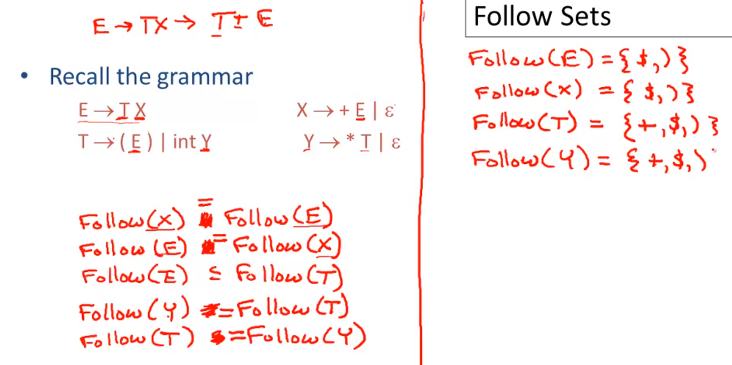 E → TX → T + E
• Recall the grammar
E → T X X → + E | ε
T → ( E ) | int Y Y → * T | ε
Follow(X) = Follow(E)
Follow(E) = Follow(X)
Follow(E) ⊆ Follow(T)
Follow(Y) = Follow(T)
Follow(T) = Follow(Y)
Follow Sets
Follow(E) = { $, ) }
Follow(X) = { $, ) }
Follow(T) = { +, $, ) }
Follow(Y) = { +, $, )